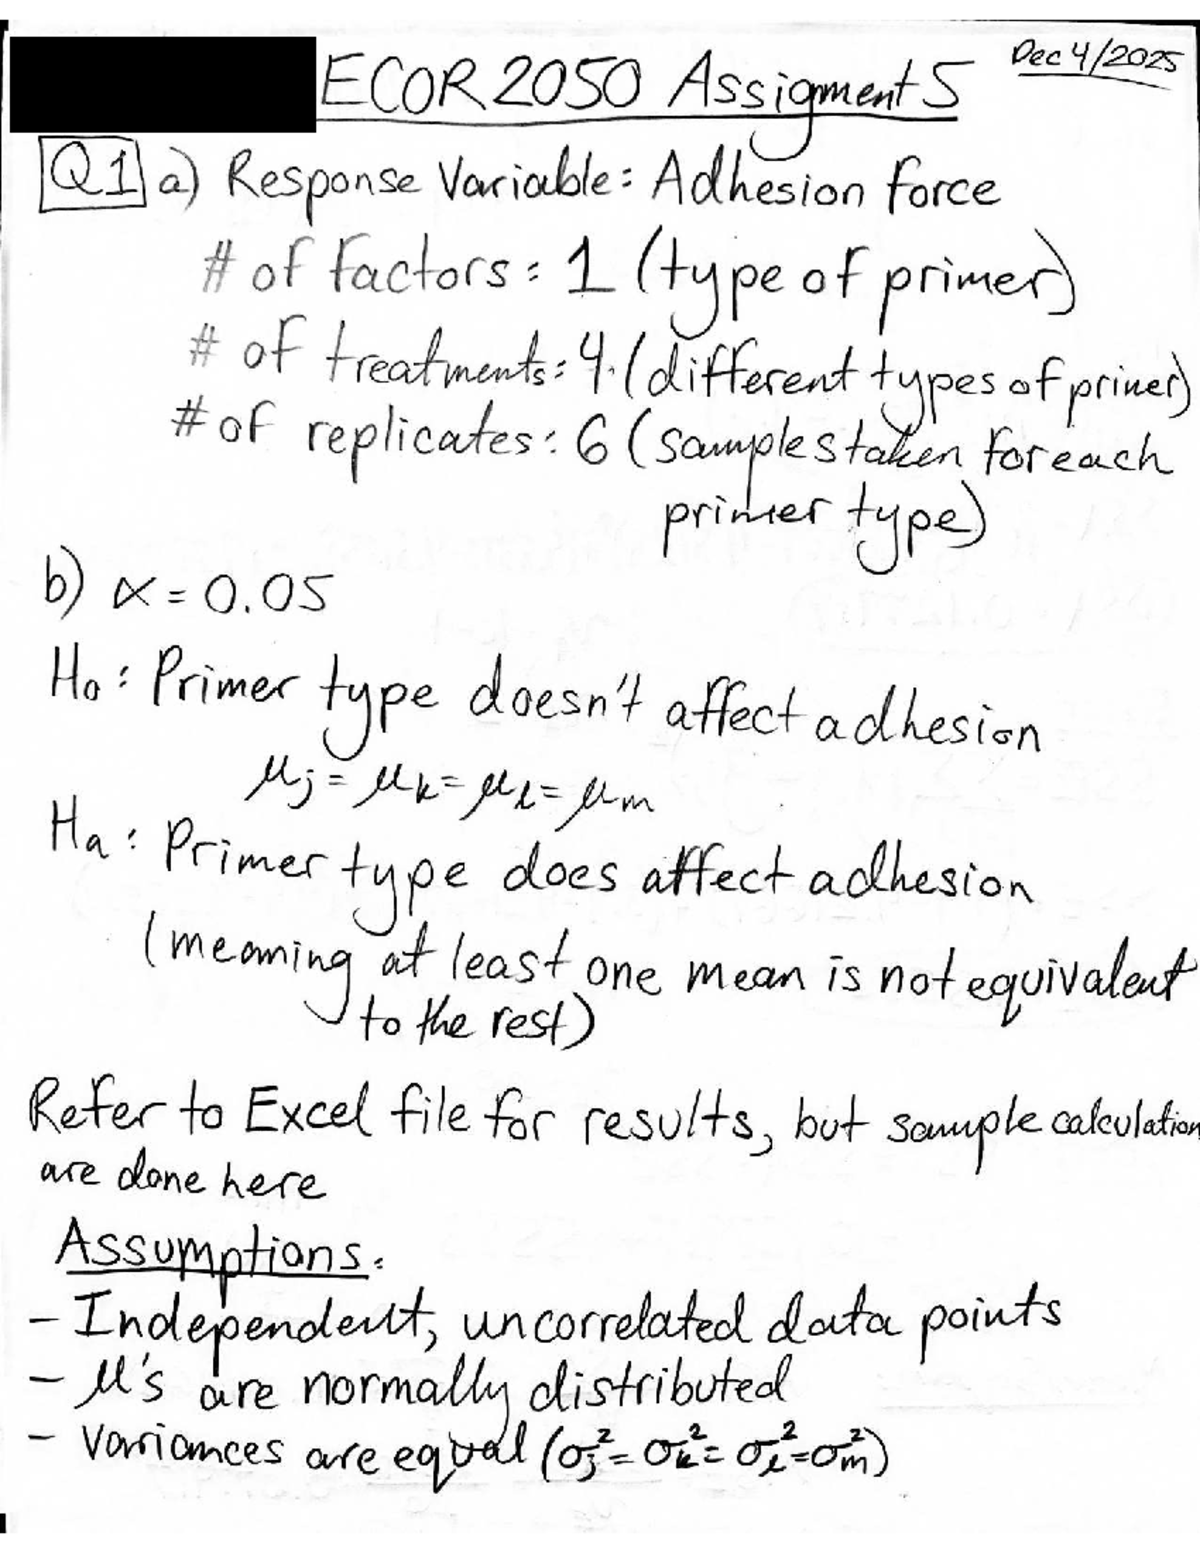 ECOR 2050 Assignment 5
Dec 4/2025
Q1 a) Response Variable: Adhesion force
# of factors: 1 (type of primer)
# of treatments: 4 (different types of primer)
# of replicates: 6 (samples taken for each
primer type)
b) α = 0.05
H₀: Primer type doesn't affect adhesion
μⱼ = μₖ = μₗ = μₘ
Hₐ: Primer type does affect adhesion
(meaning at least one mean is not equivalent
to the rest)
Refer to Excel file for results, but sample calculation
are done here
Assumptions:
- Independent, uncorrelated data points
- μ's are normally distributed
- Variances are equal (σⱼ² = σₖ² = σₗ² = σₘ²)